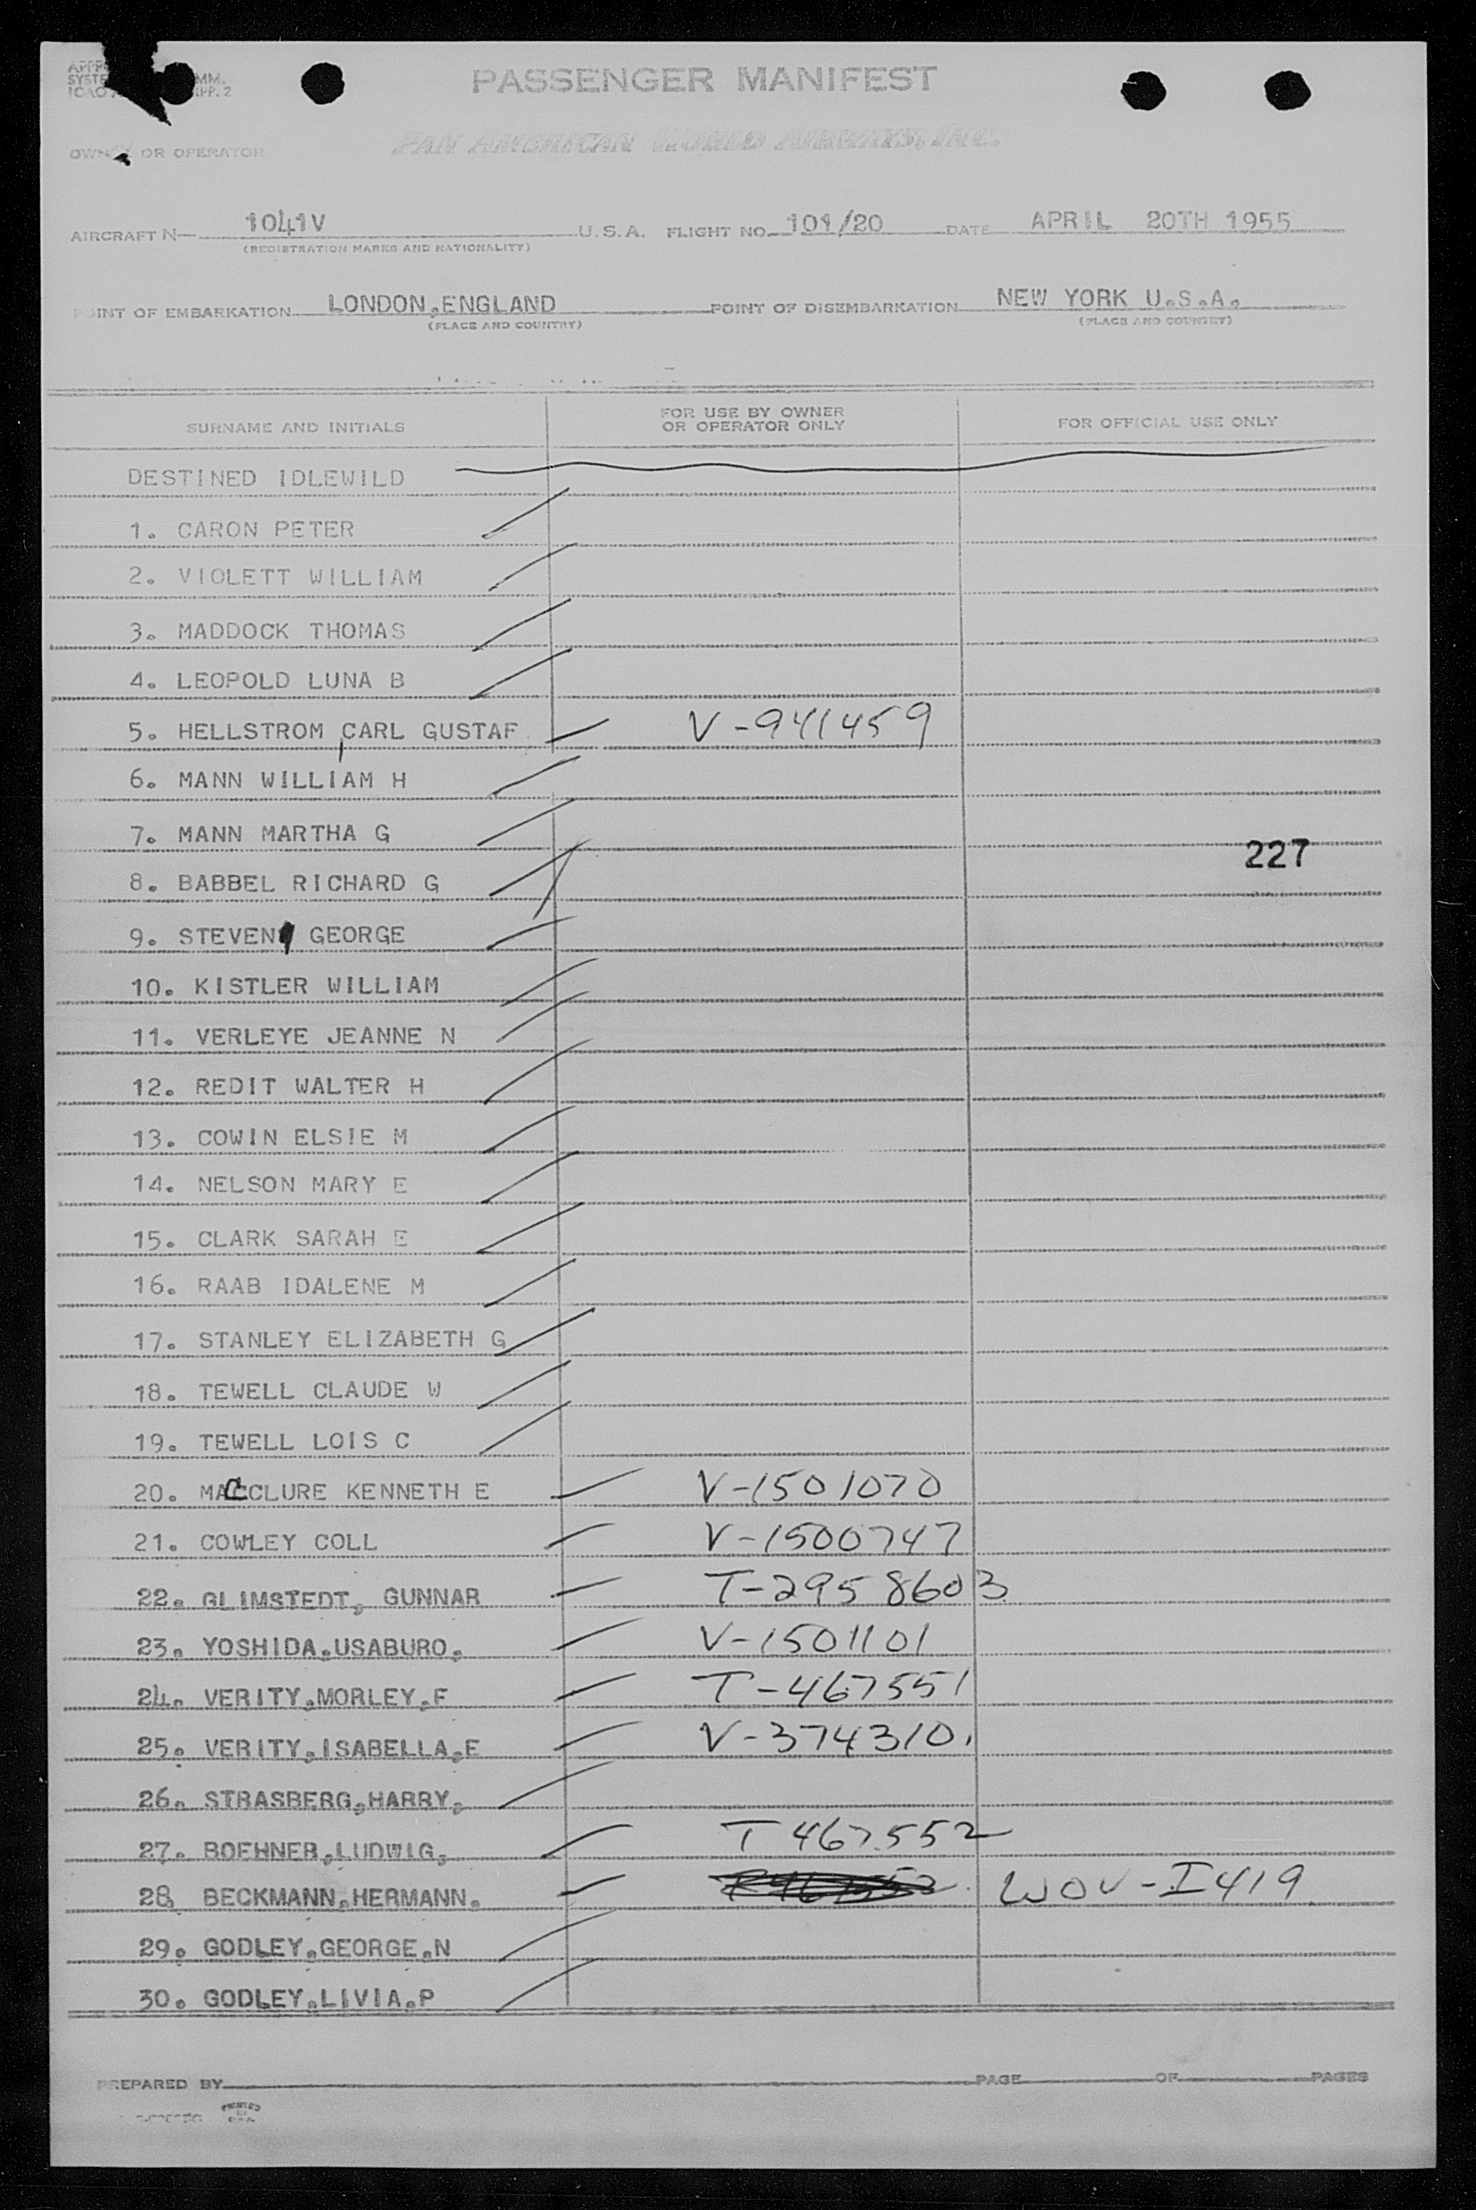 PASSENGER MANIFEST
PAN AMERICAN WORLD AIRWAYS, INC.
OR OPERATOR
AIRCRAFT N 1041V U.S.A. FLIGHT NO. 101/20 DATE APRIL 20TH 1955
(REGISTRATION MARKS AND NATIONALITY)
POINT OF EMBARKATION LONDON,ENGLAND POINT OF DISEMBARKATION NEW YORK U.S.A.
(PLACE AND COUNTRY) (PLACE AND COUNTRY)
SURNAME AND INITIALS FOR USE BY OWNER OR OPERATOR ONLY FOR OFFICIAL USE ONLY
DESTINED IDLEWILD
1. CARON PETER
2. VIOLETT WILLIAM
3. MADDOCK THOMAS
4. LEOPOLD LUNA B
5. HELLSTROM, CARL GUSTAF V-941459
6. MANN WILLIAM H
7. MANN MARTHA G
227
8. BABBEL RICHARD G
9. STEVEN GEORGE
10. KISTLER WILLIAM
11. VERLEYE JEANNE N
12. REDIT WALTER H
13. COWIN ELSIE M
14. NELSON MARY E
15. CLARK SARAH E
16. RAAB IDALENE M
17. STANLEY ELIZABETH G
18. TEWELL CLAUDE W
19. TEWELL LOIS C
20. MACCLURE KENNETH E V-1501070
21. COWLEY COLL V-1500747
22. GLIMSTEDT, GUNNAR T-2958603
23. YOSHIDA.USABURO. V-1501101
24. VERITY,MORLEY.F T-467551
25. VERITY,ISABELLA,E V-374310.
26. STRASBERG,HARRY,
27. BOEHNER,LUDWIG, T 467552
28 BECKMANN,HERMANN. WOV-I419
29. GODLEY,GEORGE.N
30. GODLEY.LIVIA.P
PREPARED BY PAGE OF PAGES